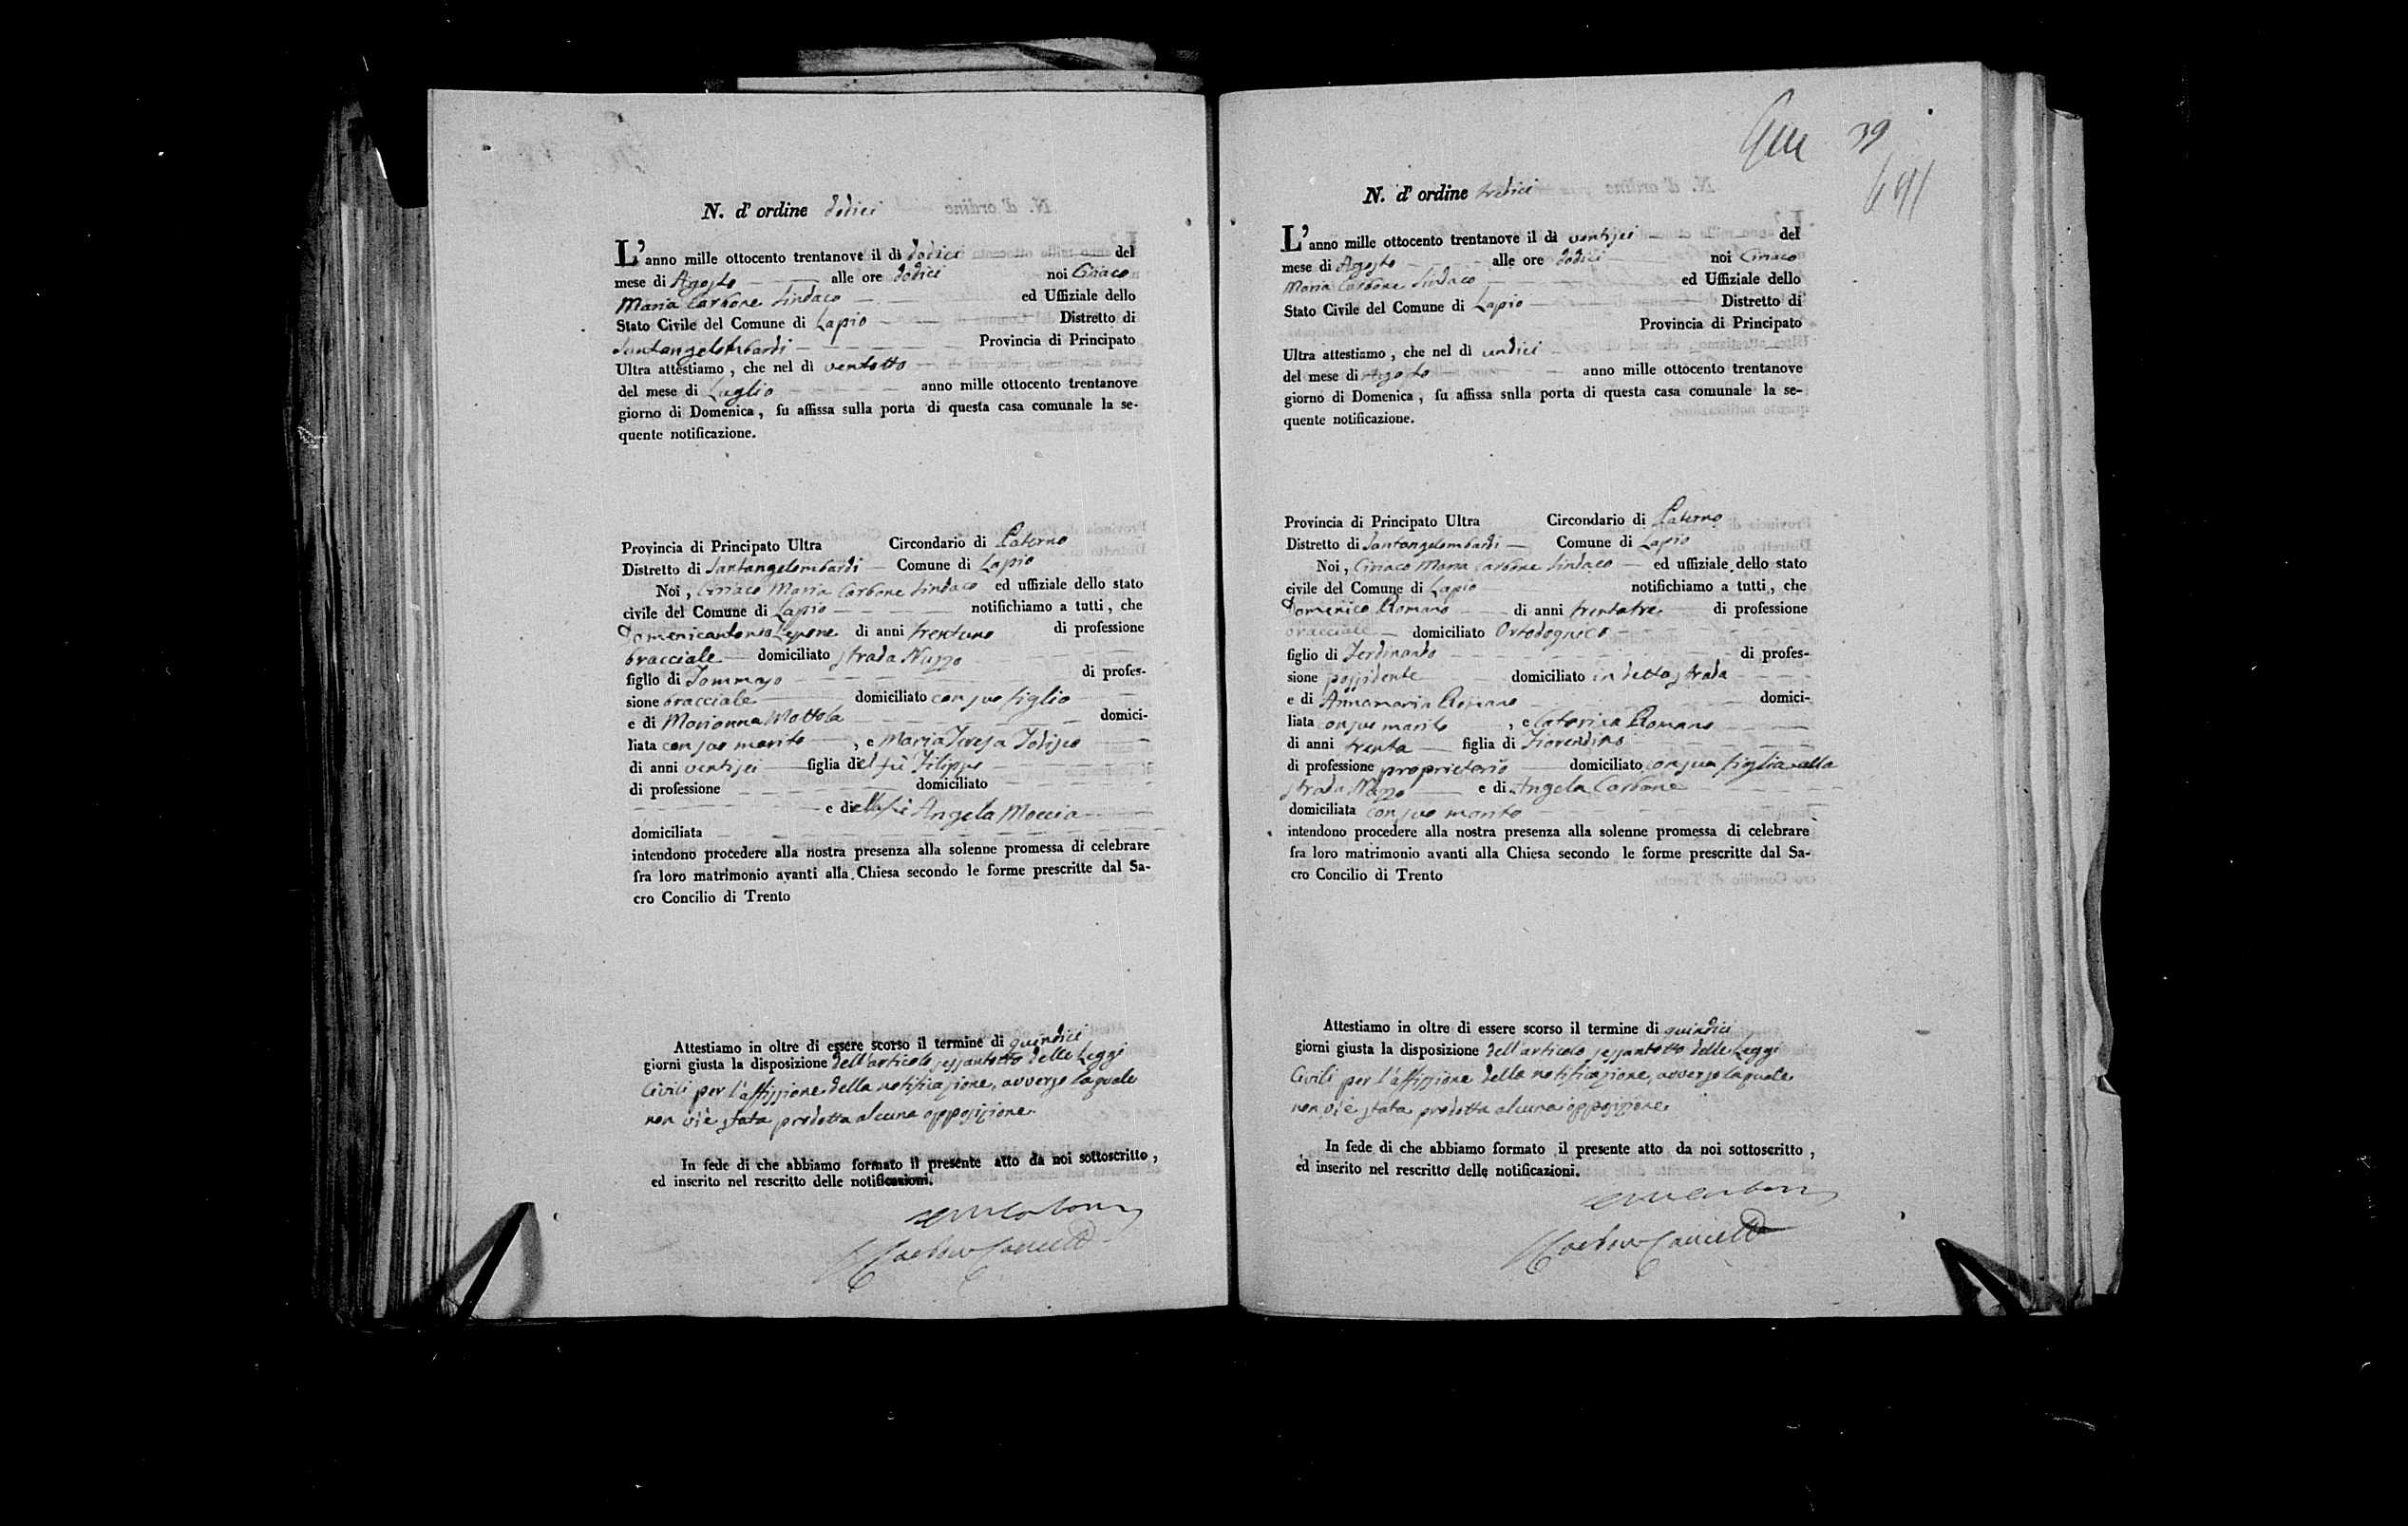 N. d' ordine dodici
L'anno mille ottocento trentanove il dì dodici del
mese di Agosto alle ore dodici noi Ciriaco
Maria Carbone Sindaco ed Uffiziale dello
Stato Civile del Comune di Lapio Distretto di
Santangelombardi Provincia di Principato
Ultra attestiamo, che nel dì ventotto
del mese di Luglio anno mille ottocento trentanove
giorno di Domenica, fu affissa sulla porta di questa casa comunale la se-
quente notificazione.
Provincia di Principato Ultra Circondario di Paterno
Distretto di Santangelombardi Comune di Lapio
Noi, Ciriaco Maria Carbone Sindaco ed uffiziale dello stato
civile del Comune di Lapio notifichiamo a tutti, che
Domenicantonio Lepone di anni trentuno di professione
bracciale domiciliato strada Nuzzo
figlio di Tommaso di profes-
sione bracciale domiciliato con suo figlio
e di Marianna Mottola domici-
liata con suo marito, e Maria Teresa Todisco
di anni ventisei figlia del fù Filippo
di professione domiciliato
e della fù Angela Moccia
domiciliata
intendono procedere alla nostra presenza alla solenne promessa di celebrare
fra loro matrimonio avanti alla Chiesa secondo le forme prescritte dal Sa-
cro Concilio di Trento
Attestiamo in oltre di essere scorso il termine di quindici
giorni giusta la disposizione dell'articolo sessantotto delle Leggi
Civili per l'affissione della notificazione, avverso la quale
non vi è stata prodotta alcuna opposizione.
In fede di che abbiamo formato il presente atto da noi sottoscritto,
ed inserito nel rescritto delle notificazioni.
39
691
N. d' ordine tredici
L'anno mille ottocento trentanove il dì ventisei del
mese di Agosto alle ore dodici noi Ciriaco
Maria Carbone Sindaco ed Uffiziale dello
Stato Civile del Comune di Lapio Distretto di
Provincia di Principato
Ultra attestiamo, che nel dì undici
del mese di Agosto anno mille ottocento trentanove
giorno di Domenica, fu affissa sulla porta di questa casa comunale la se-
quente notificazione.
Provincia di Principato Ultra Circondario di Paterno
Distretto di Santangelombardi Comune di Lapio
Noi, Ciriaco Maria Carbone Sindaco ed uffiziale dello stato
civile del Comune di Lapio notifichiamo a tutti, che
Domenico Romano di anni trentatre di professione
bracciale domiciliato Ortodognico
figlio di Ferdinando di profes-
sione possidente domiciliato in detta strada
e di Annamaria Romano domici-
liata con suo marito, e Caterina Romano
di anni trenta figlia di Fiorendino
di professione proprietario domiciliato con sua figlia alla
strada Nuzzo e di Angela Carbone
domiciliata con suo marito
intendono procedere alla nostra presenza alla solenne promessa di celebrare
fra loro matrimonio avanti alla Chiesa secondo le forme prescritte dal Sa-
cro Concilio di Trento
Attestiamo in oltre di essere scorso il termine di quindici
giorni giusta la disposizione dell'articolo sessantotto delle Leggi
Civili per l'affissione della notificazione, avverso la quale
non vi è stata prodotta alcuna opposizione
In fede di che abbiamo formato il presente atto da noi sottoscritto,
ed inserito nel rescritto delle notificazioni.